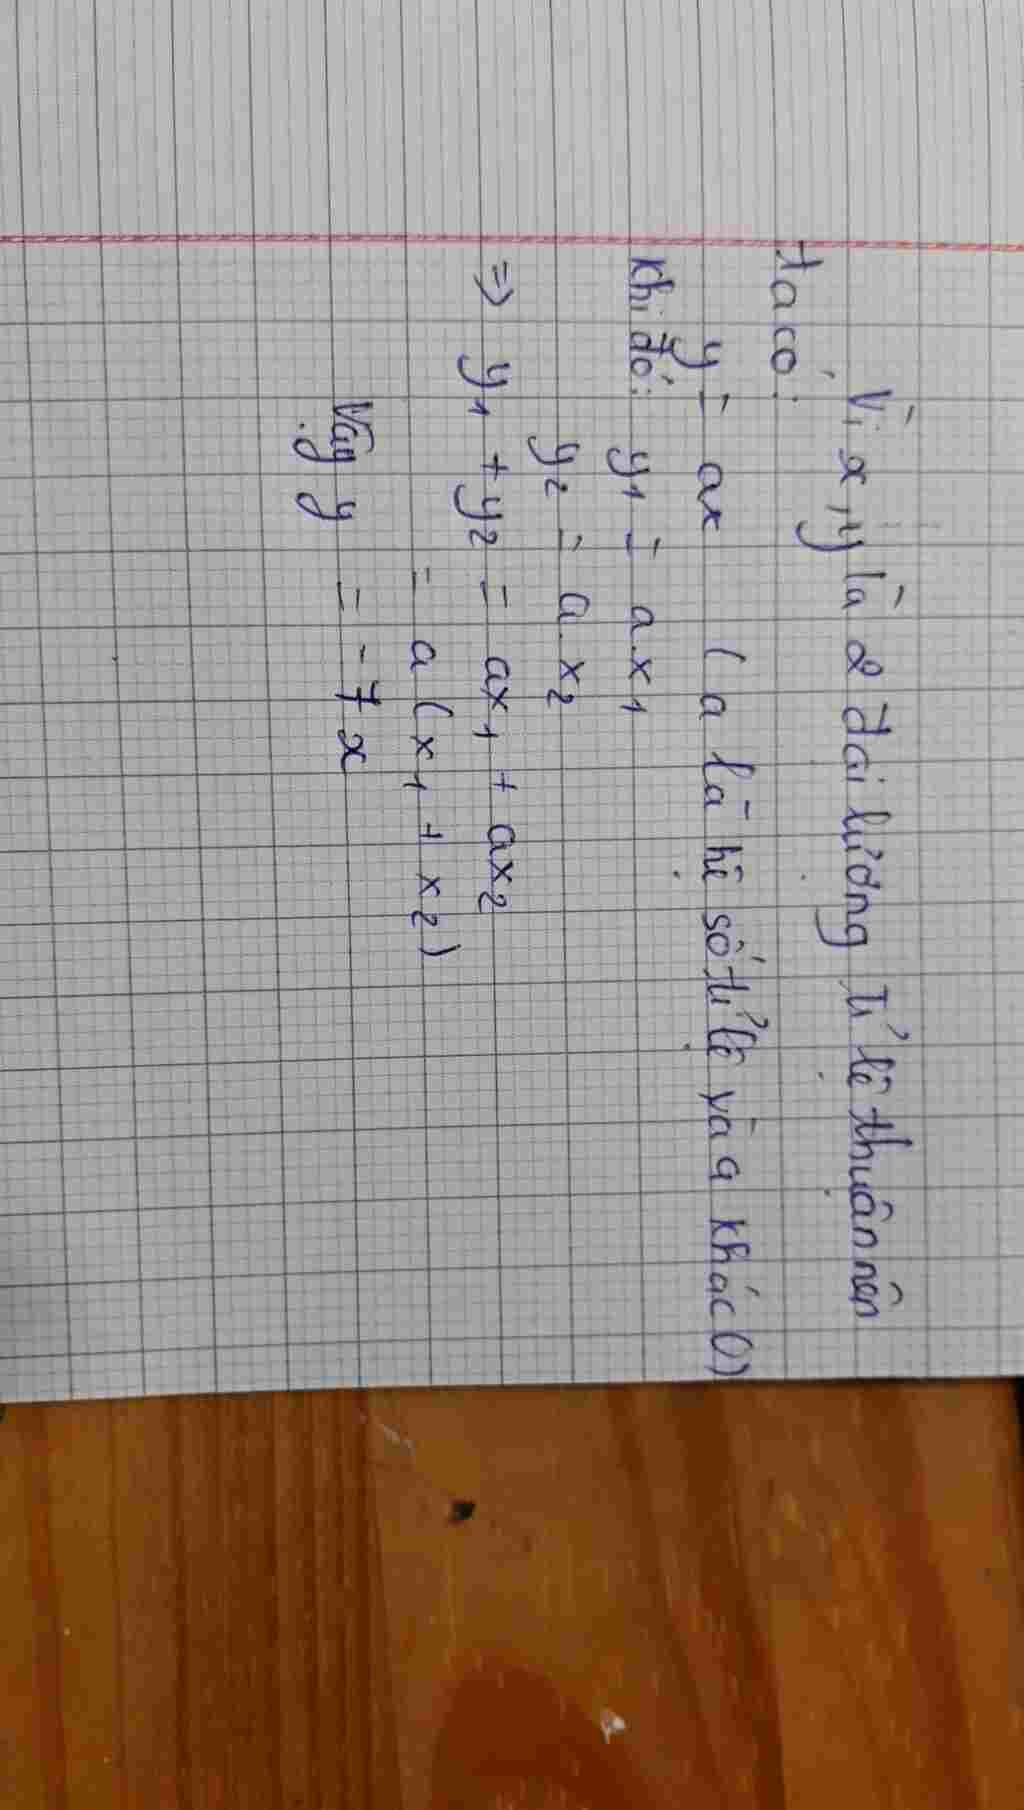 Vì x, y là 2 đại lượng tỉ lệ thuận nên
ta có:
y = ax ( a là hệ số tỉ lệ và a khác 0)
khi đó: y₁ = a.x₁
y₂ = a.x₂
=> y₁ + y₂ = ax₁ + ax₂
= a (x₁ + x₂)
Vậy y = -7x